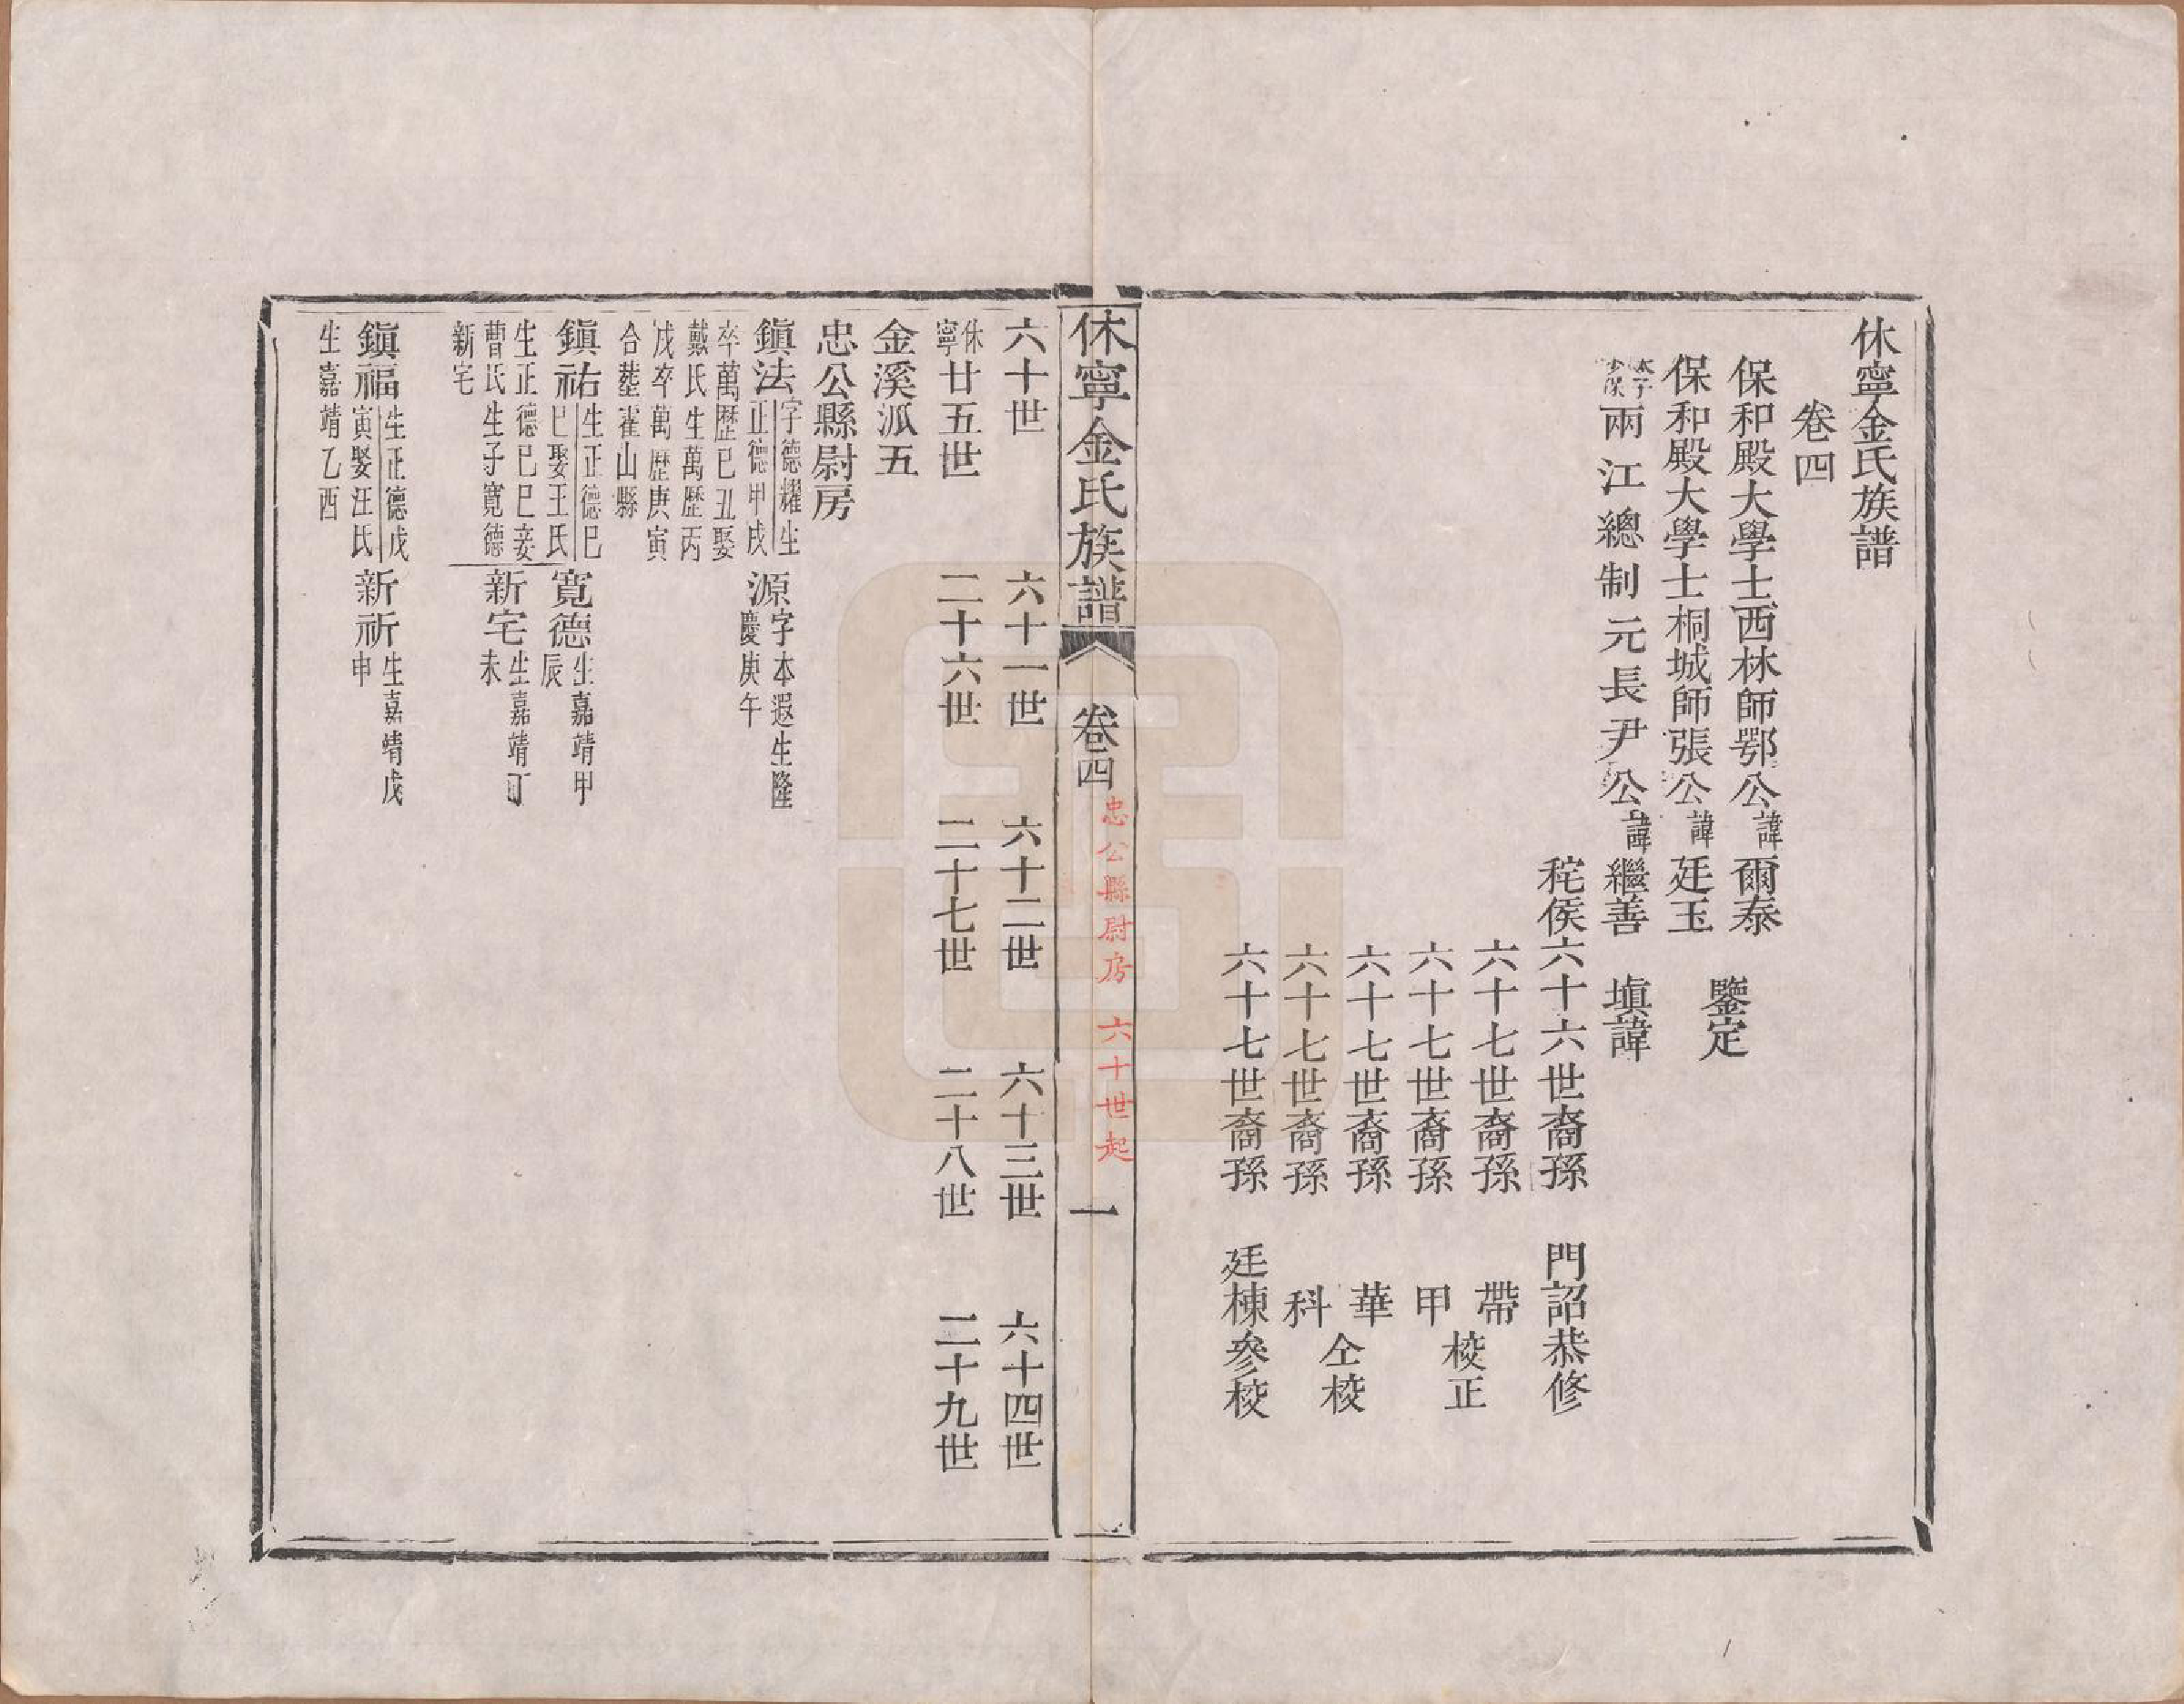 休寧金氏族譜
卷四
保和殿大學士西林師鄂公諱爾泰
保和殿大學士桐城師張公諱廷玉
鑒定
太子少保兩江總制元長尹公諱繼善 塡諱
秺侯六十六世裔孫 門詔恭修
六十七世裔孫 帶
六十七世裔孫 甲
校正
六十七世裔孫 華
六十七世裔孫 科
仝校
六十七世裔孫 廷棟參校
休寧金氏族譜 卷四 忠公縣尉房 六十世起 一
六十世 六十一世 六十二世 六十三世 六十四世
休寧廿五世 二十六世 二十七世 二十八世 二十九世
金溪派五
忠公縣尉房
鎭法 字德耀生
正德甲戌
卒萬歷己丑娶
戴氏生萬歷丙
戊卒萬歷庚寅
合塟山縣
源 字本遐生隆
慶庚午
鎭祐 生正德己
巳娶王氏
生正德己巳妾
曹氏生子寬德
新宅
寬德 生嘉靖甲
辰
新宅 生嘉靖丁
未
鎭福 生正德戊
寅娶汪氏
生嘉靖乙酉
新祈 生嘉靖戊
申